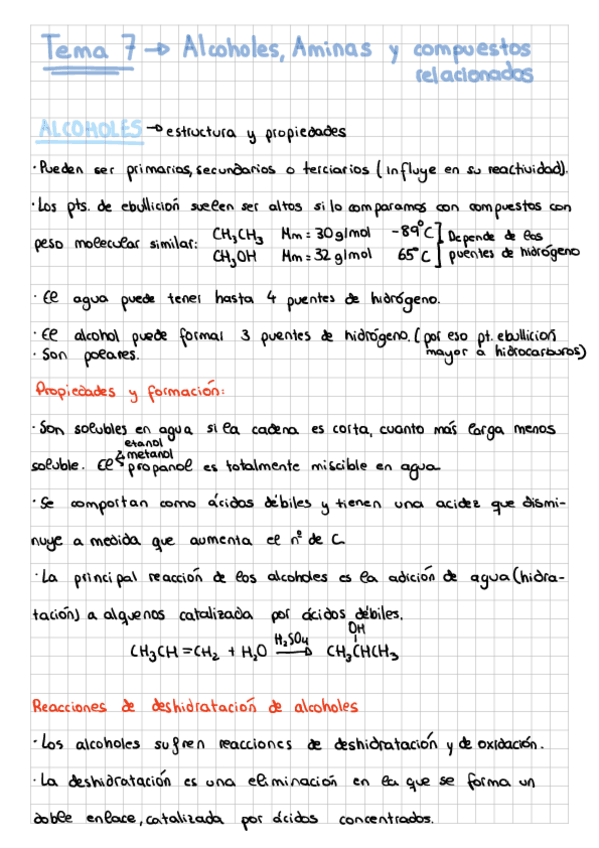 Tema 7 → Alcoholes, Aminas y compuestos
relacionados
ALCOHOLES → estructura y propiedades
· Pueden ser primarios, secundarios o terciarios (influye en su reactividad).
· Los pts. de ebullición suelen ser altos si lo comparamos con compuestos con
peso molecular similar: CH₃CH₃ Mm = 30 g/mol -89°C ] Depende de los
CH₃OH Mm = 32 g/mol 65°C ] puentes de hidrógeno
· El agua puede tener hasta 4 puentes de hidrógeno.
· El alcohol puede formar 3 puentes de hidrógeno. (por eso pt. ebullición
· Son polares. mayor a hidrocarburos)
Propiedades y formación:
· Son solubles en agua si la cadena es corta, cuanto más larga menos
etanol
metanol
soluble. El propanol es totalmente miscible en agua
· Se comportan como ácidos débiles y tienen una acidez que dismi-
nuye a medida que aumenta el nº de C.
· La principal reacción de los alcoholes es la adición de agua (hidra-
tación) a alquenos catalizada por ácidos débiles.
OH
CH₃CH=CH₂ + H₂O H₂SO₄→ CH₃CHCH₃
Reacciones de deshidratación de alcoholes
· Los alcoholes sufren reacciones de deshidratación y de oxidación.
· La deshidratación es una eliminación en la que se forma un
doble enlace, catalizada por ácidos concentrados.